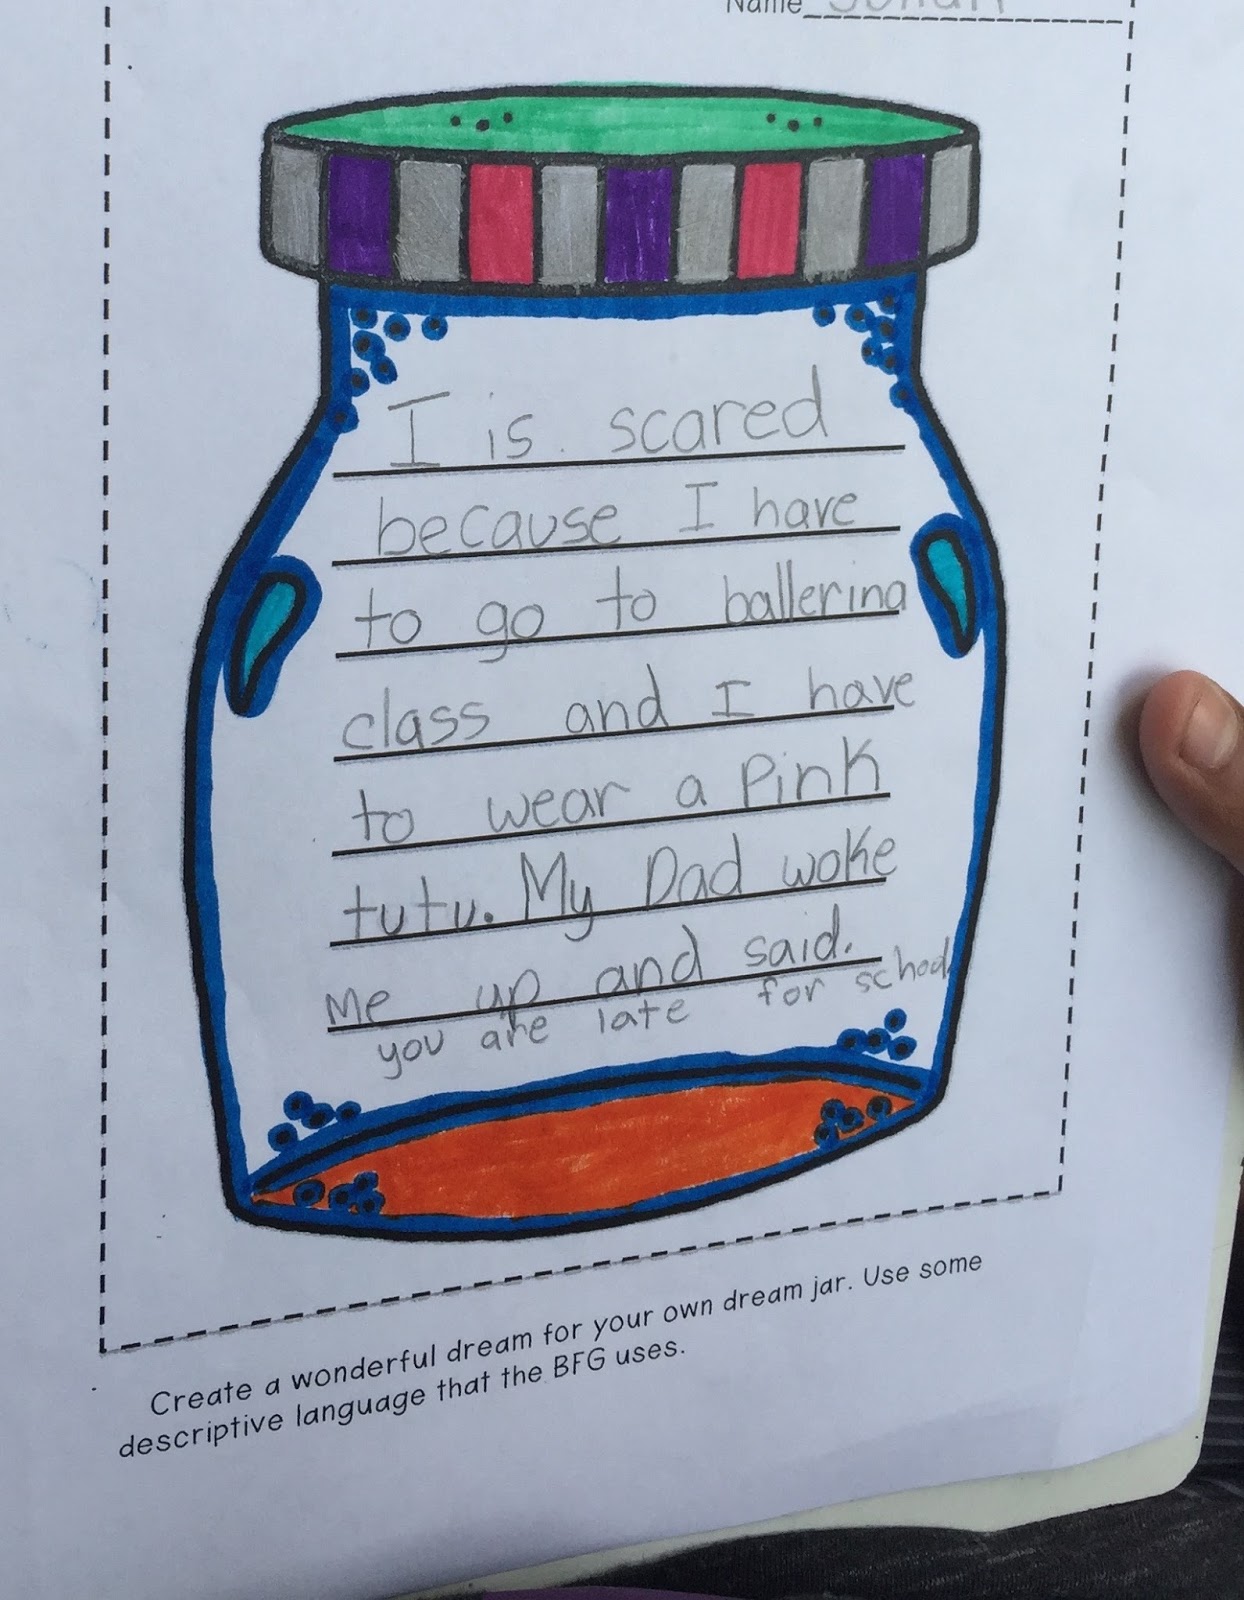 Name
I is. scared
because I have
to go to ballerina
class and I have
to wear a Pink
tutu. My Dad woke
Me up and said.
you are late for school
Create a wonderful dream for your own dream jar. Use some
descriptive language that the BFG uses.